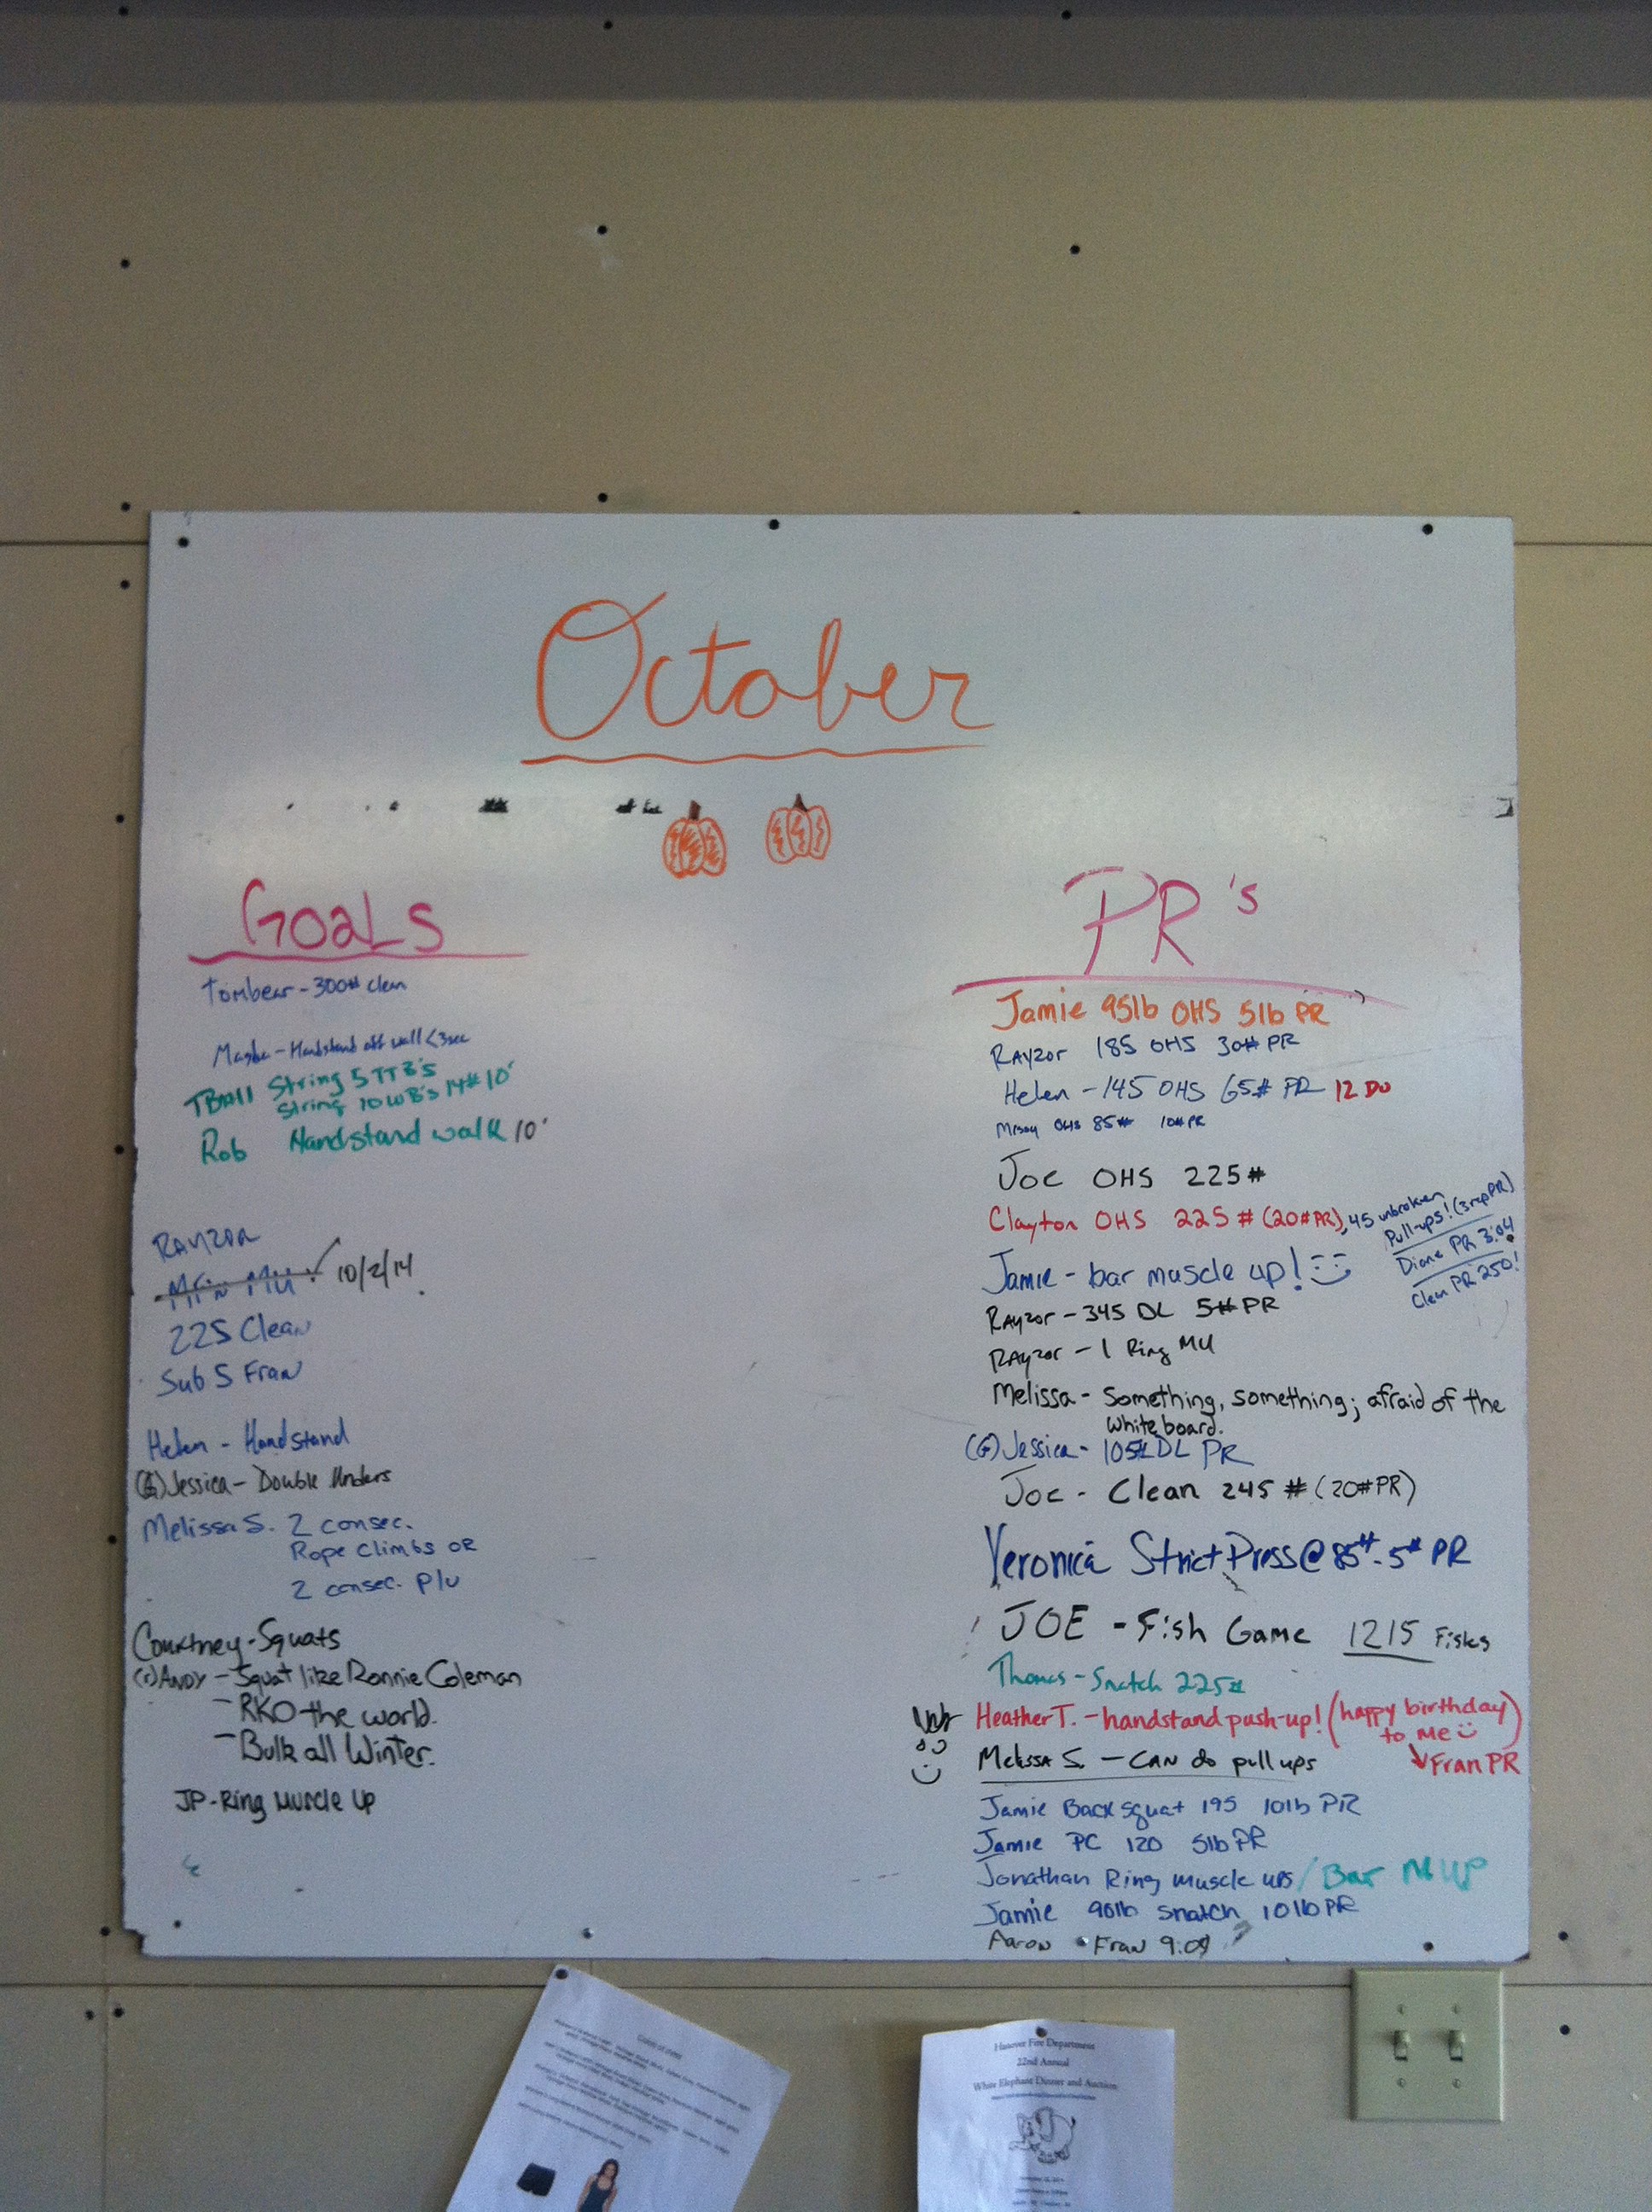 October
GOALS
Tombear - 300# clean
Handstand off wall <3sec
TBall String 5 TTB's
String 10 WB's 14# 10'
Rob Handstand walk 10'
RAYZOR
MU 10/2/14
225 Clean
Sub 5 Fran
Helen - Handstand
(G) Jessica - Double Unders
Melissa S. 2 consec.
Rope Climbs OR
2 consec. P/U
Courtney - Squats
ANDY - Squat like Ronnie Coleman
- RKO the world.
- Bulk all Winter.
JP - Ring Muscle Up
PR's
Jamie 95lb OHS 5lb PR
RAYZOR 185 OHS 30# PR
Helen - 145 OHS 65# PR 12 DU
OHS 85# 10# PR
Joe OHS 225#
Clayton OHS 225# (20#PR), 45 unbroken
Pull-ups! (3 rep PR)
Diane PR 3:04
Clean PR 250!
Jamie - bar muscle up!
RAYZOR - 345 DL 5# PR
RAYZOR - 1 Ring MU
Melissa - Something, something; afraid of the
whiteboard.
(G) Jessica - 105# DL PR
Joe - Clean 245 # (20#PR)
Veronica Strict Press @ 85# - 5# PR
JOE - Fish Game 1215 Fishs
Thomas - Snatch 225#
Heather T. - handstand push-up! (happy birthday
to me)
Fran PR
Melissa S. - CAN do pull ups
Jamie Back squat 195 10lb PR
Jamie PC 120 5lb PR
Jonathan Ring muscle ups / Bar M UP
Jamie 90lb snatch 10lb PR
Aaron Fran 9:09
Hanover Fire Department
22nd Annual
White Elephant Dinner and Auction